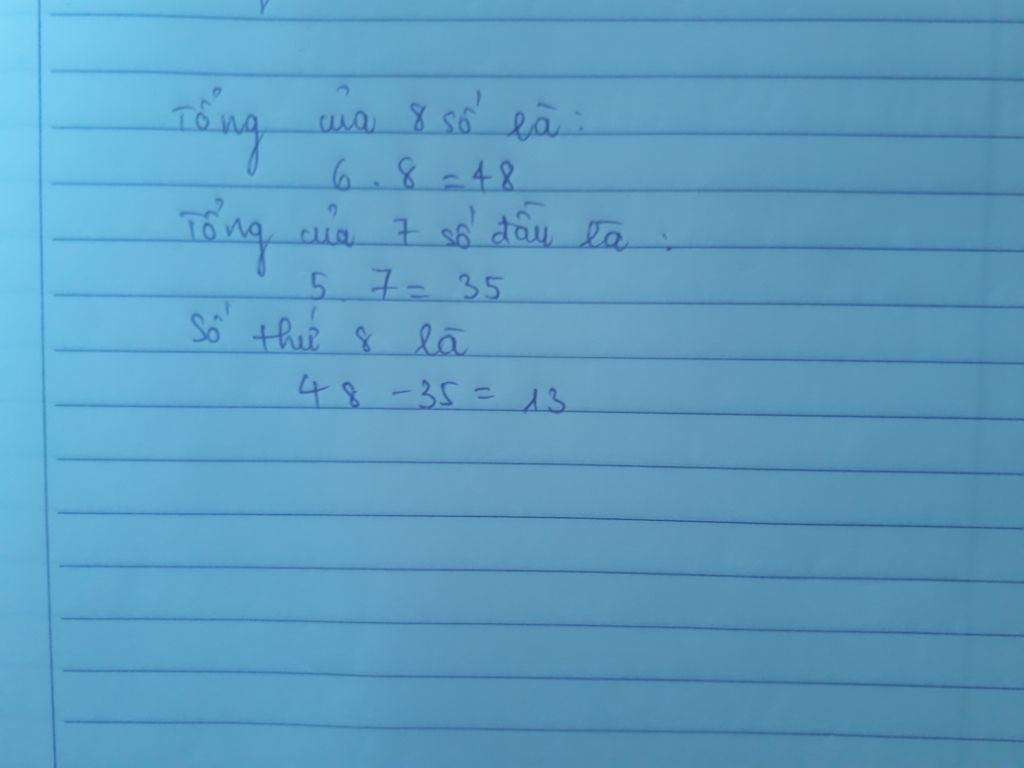 Tổng của 8 số là:
6 . 8 = 48
Tổng của 7 số đầu là:
5 . 7 = 35
Số thứ 8 là
48 - 35 = 13